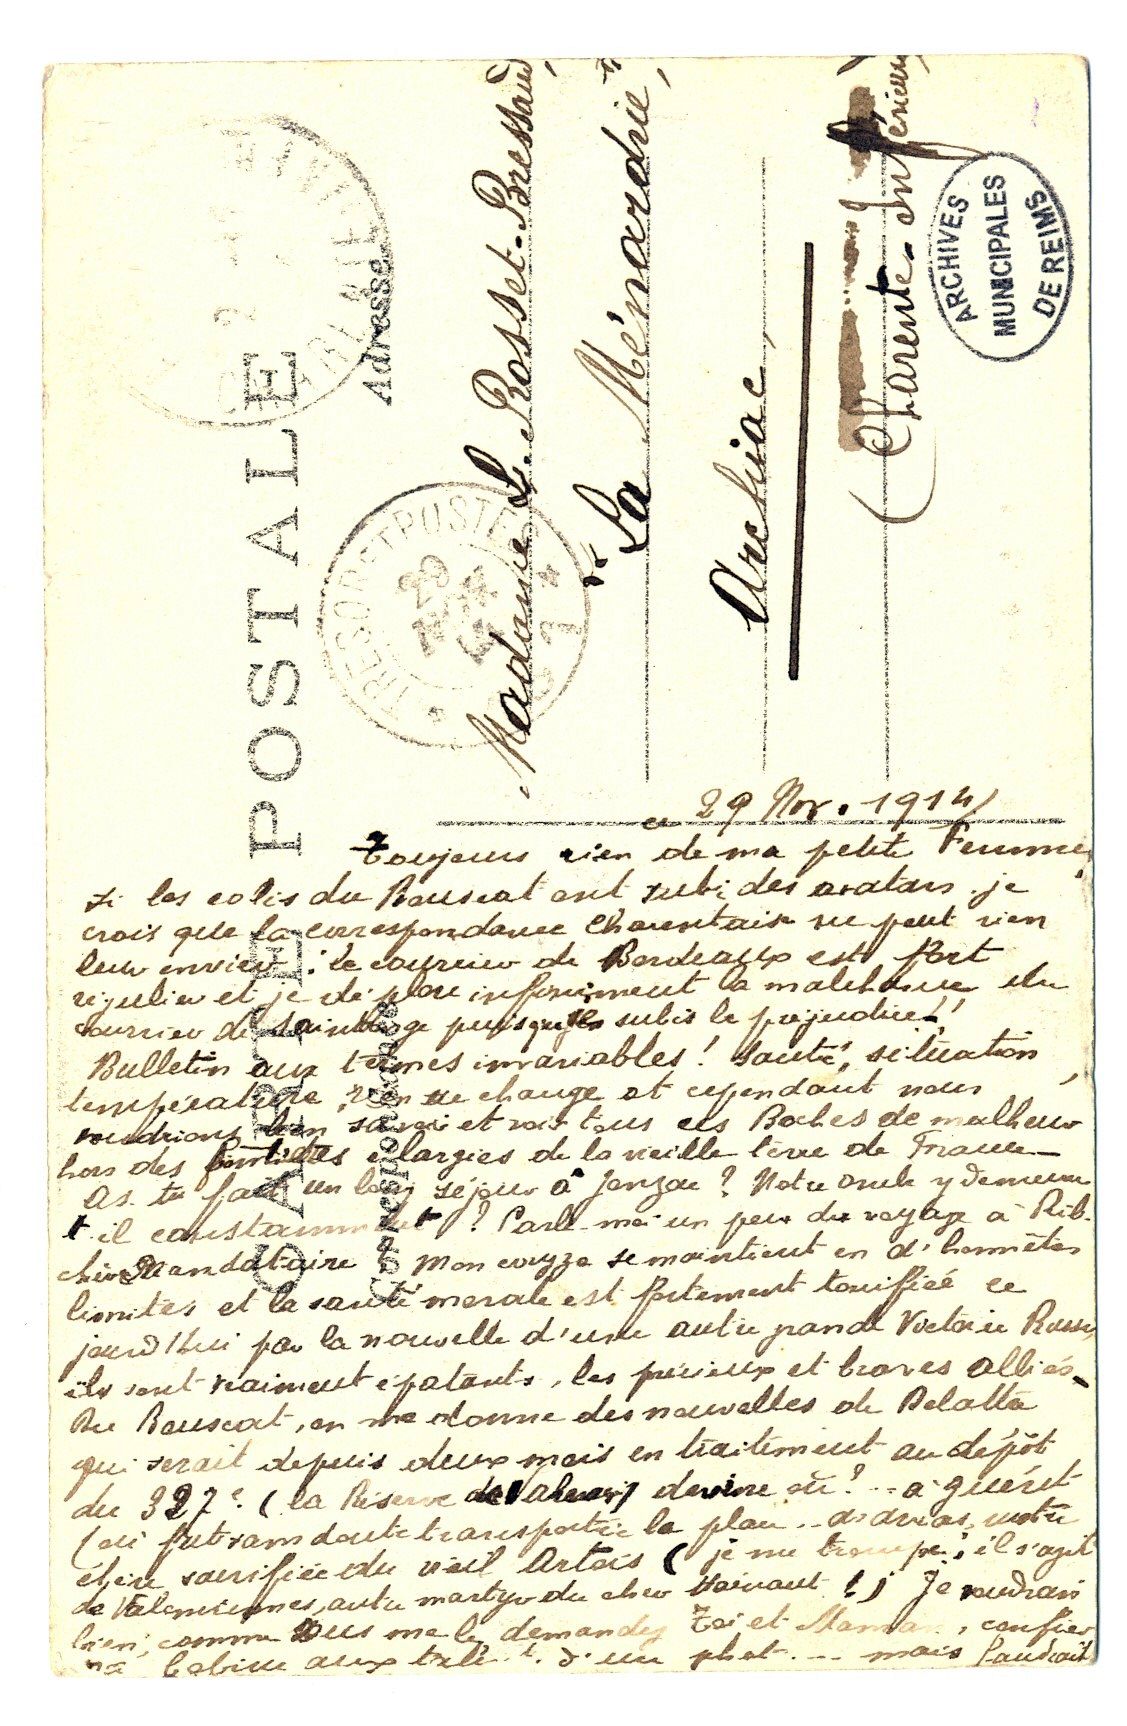 CARTE POSTALE
Correspondance
Adresse
TRESOR ET POSTES
29
Madame L. Rosset-Bressand,
La Ménardrie,
Archiac,
(Charente-Inférieure
ARCHIVES
MUNICIPALES
DE REIMS
ce 29 Nov. 1914
Toujours rien de ma petite Femme,
si les colis du Bouscat ont subi des avatars, je
crois que la correspondance Charentaise ne peut rien
leur envier : le courrier de Bordeaux est fort
régulier et je déplore infiniment la malchance du
courrier de Saintonge puisque subis le préjudice !!
Bulletin aux termes invariables ! Santé, situation,
température, rien ne change et cependant nous
voudrions bien savoir et voir tous ces Boches de malheur
hors des limites élargies de la vieille terre de France –
As-tu fait un long séjour à Jonzac ? Notre oncle y demeure
t-il constamment ? Parle-moi un peu du voyage à Rib.
cher Mandataire ? Mon coryza se maintient en d'honnêtes
limites et la santé morale est fortement tonifiée ce
jourd'hui par la nouvelle d'une autre grande Victoire Russe,
ils sont vraiment épatants, les précieux et braves alliés –
Du Bouscat, on me donne des nouvelles de Delattre
qui serait depuis deux mois en traitement au dépôt
du 327e (la Réserve de) devine où ? ... à Guéret
(où fut sans doute transportée la place ... notre
sacrifiée du vieil Artois (je me trompe, il s'agit
de Valenciennes, autre martyr du cher Hainaut !) Je voudrais
bien, comme vous me le demandez Toi et Maman, confier
ma bobine aux d'un phot. ... mais faudrait